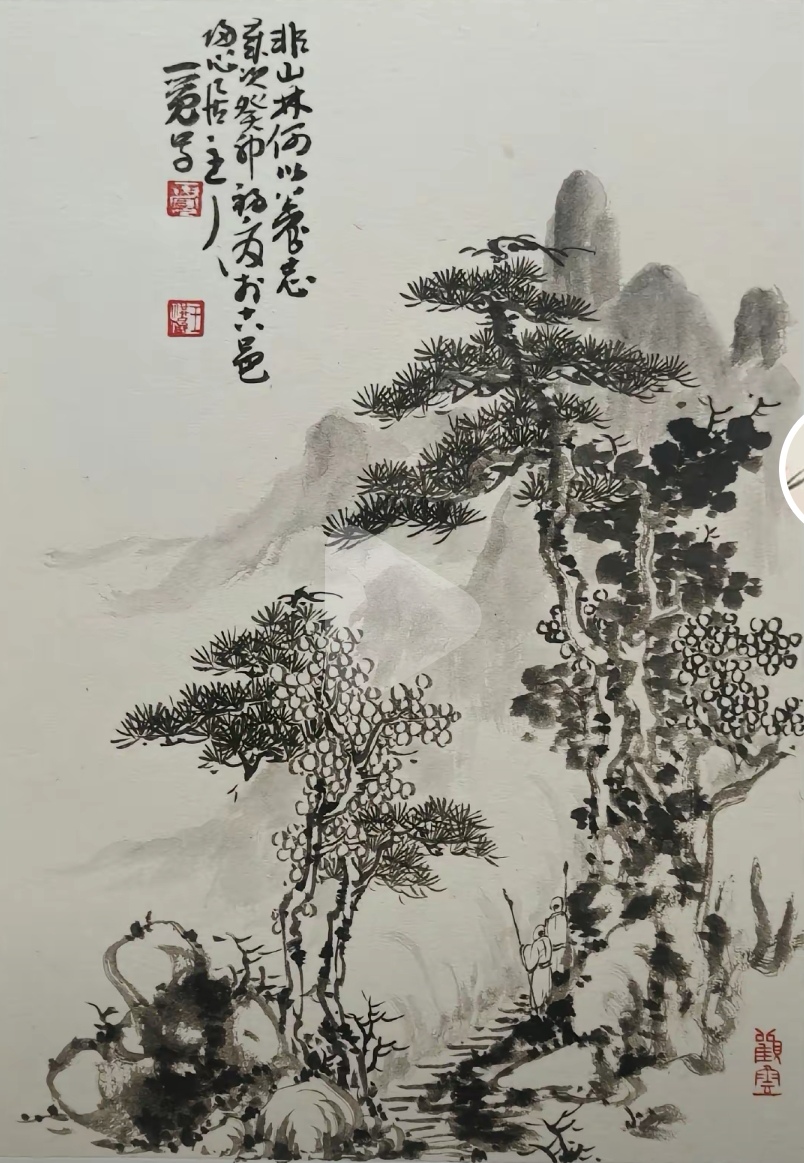 非山林何以養志
歲次癸卯初夏於邑
心居主人
一
觀雲